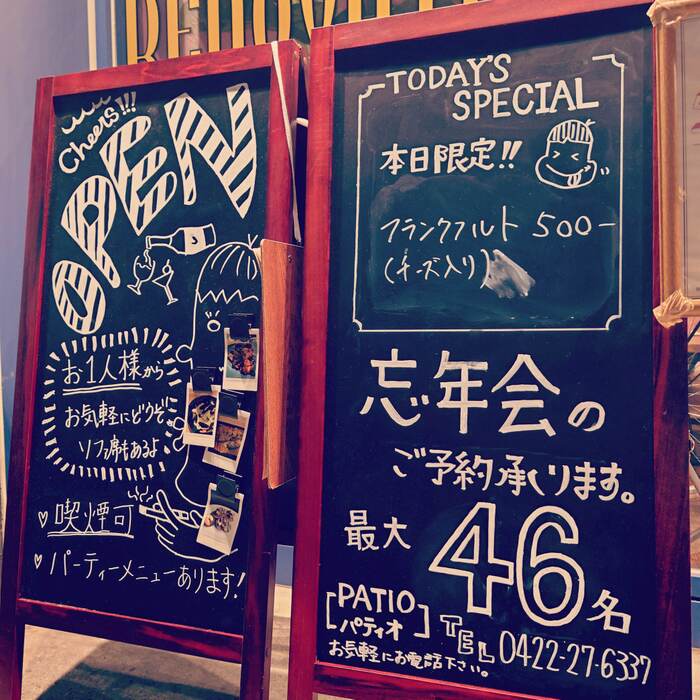 Cheers!!!
OPEN
お1人様から
お気軽にどうぞ
ソファ席もあるよ
♡喫煙可
♡パーティーメニューあります!
TODAY'S
SPECIAL
本日限定!!
フランクフルト 500-
(チーズ入り)
忘年会の
ご予約承ります。
最大 46名
[PATIO
パティオ]
TEL 0422-27-6337
お気軽にお電話下さい。